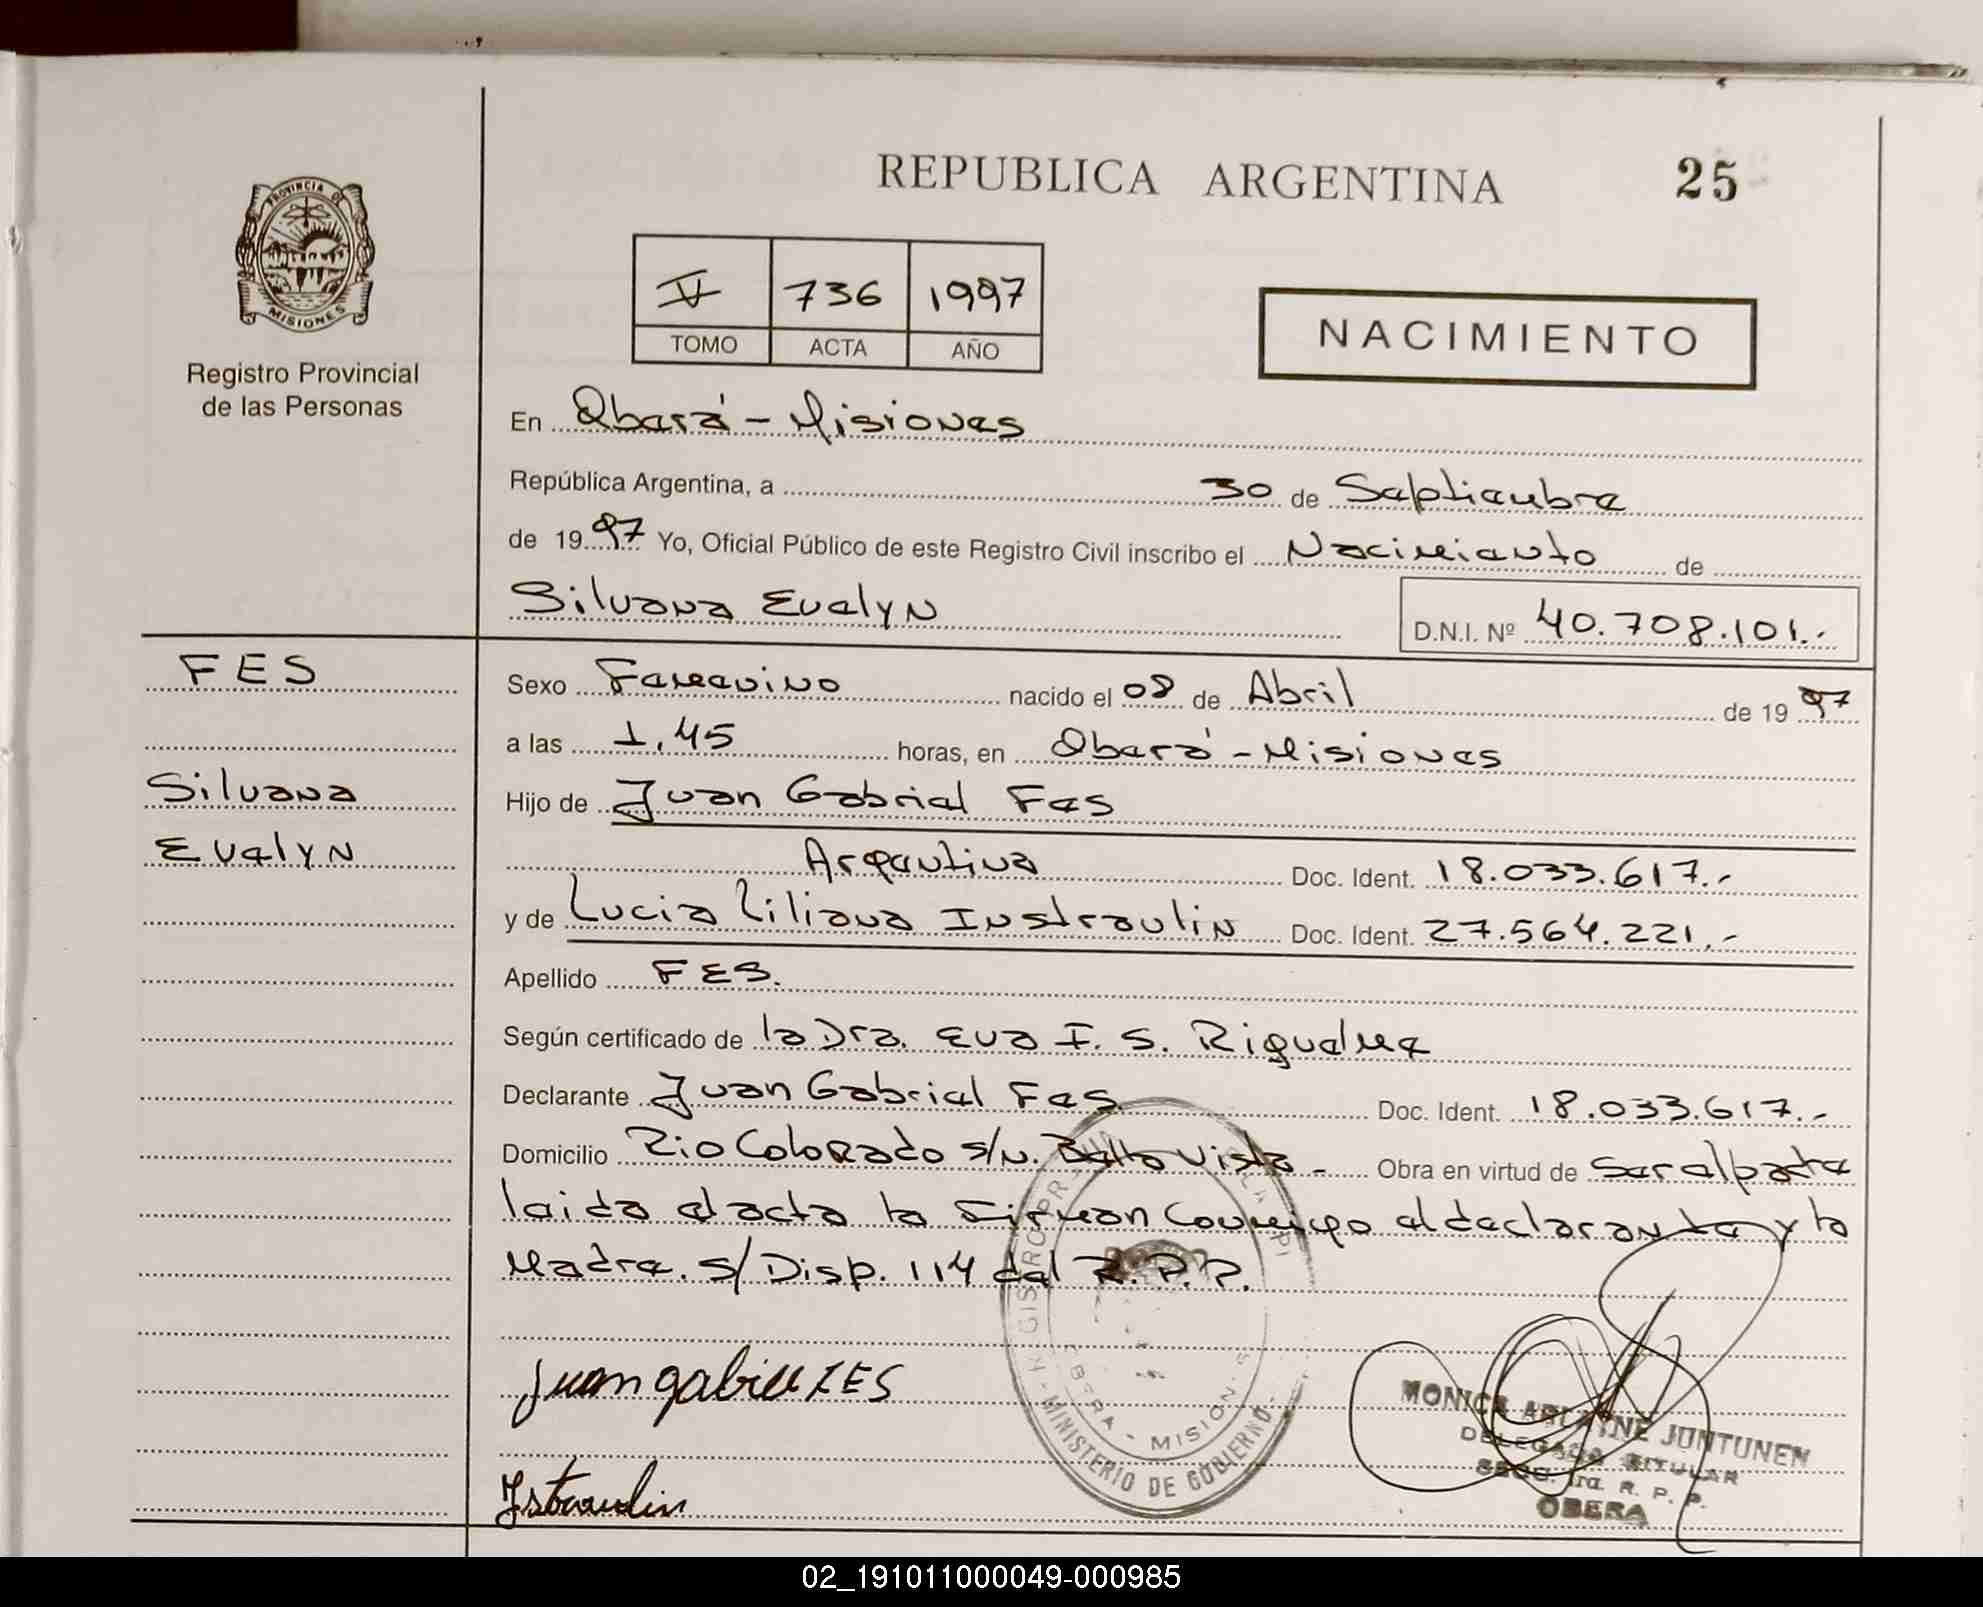 REPUBLICA ARGENTINA
25
PROVINCIA DE
MISIONES
Registro Provincial
de las Personas
V 736 1997
TOMO ACTA AÑO
NACIMIENTO
En Oberá - Misiones
República Argentina, a 30 de Septiembre
de 1997 Yo, Oficial Público de este Registro Civil inscribo el Nacimiento de
Silvana Evelyn D.N.I. Nº 40.708.101.-
FES
Silvana
Evelyn
Sexo Femenino nacido el 08 de Abril de 1997
a las 1,45 horas, en Oberá - Misiones
Hijo de Juan Gabriel Fes
Argentina Doc. Ident. 18.033.617.-
y de Lucia Liliana Instraulin Doc. Ident. 27.564.221.-
Apellido FES.
Según certificado de la Dra. Eva I. S. Riguelme
Declarante Juan Gabriel Fes Doc. Ident. 18.033.617.-
Domicilio Rio Colorado s/n. Bella Vista - Obra en virtud de Ser el padre
leida el acta la Firman Conmigo el declarante y la
Madre. s/ Disp. 114 del R.P.P.
Juan gabriel FES
Istraulin
MINISTERIO DE GOBIERNO
MONICA ARLAYNE JUNTUNEN
DELEGADA TITULAR
SECC. 1ra. R. P. P.
OBERA
02_191011000049-000985